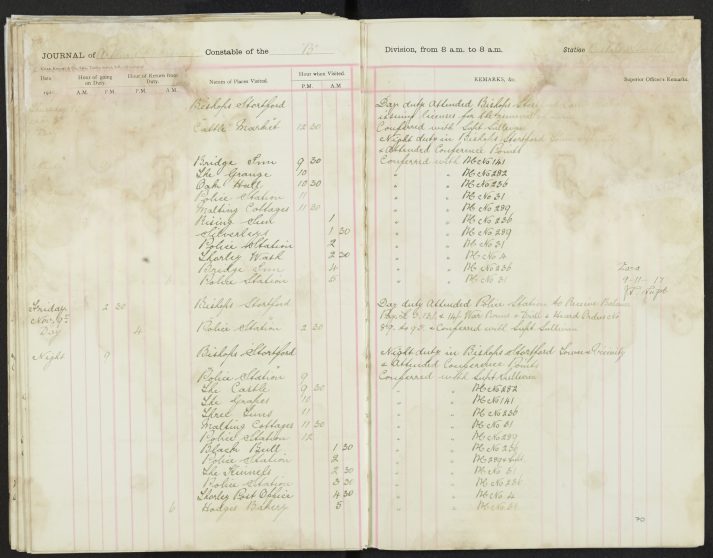 JOURNAL of Constable of the "B" Division, from 8 a.m. to 8 a.m. Station
Date Hour of going on Duty. Hour of Return from Duty. Names of Places Visited. Hour when Visited. REMARKS, &c. Superior Officer's Remarks.
191 A.M. P.M. A.M. P.M. P.M. A.M.
Bishops Stortford Day duty Attended Bishops
Day issuing licences for the
Castle Market 12 30 Conferred with Supt Sullivan
Night duty in Bishops Stortford
& Attended Conference Points
Bridge Inn 9 30 Conferred with Pc No 141
The Grange 10 " " Pc No 282
Oak Hall 10 30 " " Pc No 236
Police Station 11 " " Pc No 31
Malting Cottages 11 30 " " Pc No 289
Rising Sun 1 " " Pc No 236
Silverleys 1 30 " " Pc No 289
Police Station 2 " " Pc No 31
Thorley Wash 2 30 " " Pc No 4
Bridge Inn 4 " " Pc No 236
Police Station 5 " " Pc No 31
9-11-17
Supt
Friday 2 30 Bishops Stortford Day duty Attended Police Station to Receive
Nov 9th Pay, & War Bonus & Drill & Heard Orders No
Day 4 Police Station 2 30 89 to 93 & Conferred with Supt Sullivan
Night 9 Bishops Stortford Night duty in Bishops Stortford Town & Vicinity
& Attended Conference Points
Police Station 9 Conferred with Supt Sullivan
The Castle 9 30 " " Pc No 282
The Grapes 10 " " Pc No 141
Three Tuns 11 " " Pc No 236
Malting Cottages 11 30 " " Pc No 31
Police Station 12 " " Pc No 289
Black Bull 1 30 " " Pc No 236
Police Station 2
The Kennels 2 30 " " Pc No 31
Police Station 3 30 " " Pc No 236
Thorley Post Office 4 30 " " Pc No 4
6 Hodges Bakery 5 " " Pc No 31
70